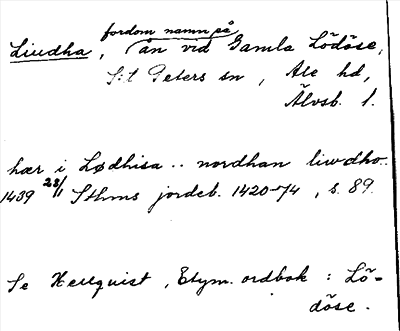 fordom namn på
Liudha, ån vid Gamla Lödöse,
S:t Peters sn, Ale hd,
Älvsb. l.
hær i Lødhisa .. nordhan liwdho..
1439 23/1 Sthms jordeb. 1420-74, s. 89.
Se Hellquist, Etym. ordbok : Lö-
döse.